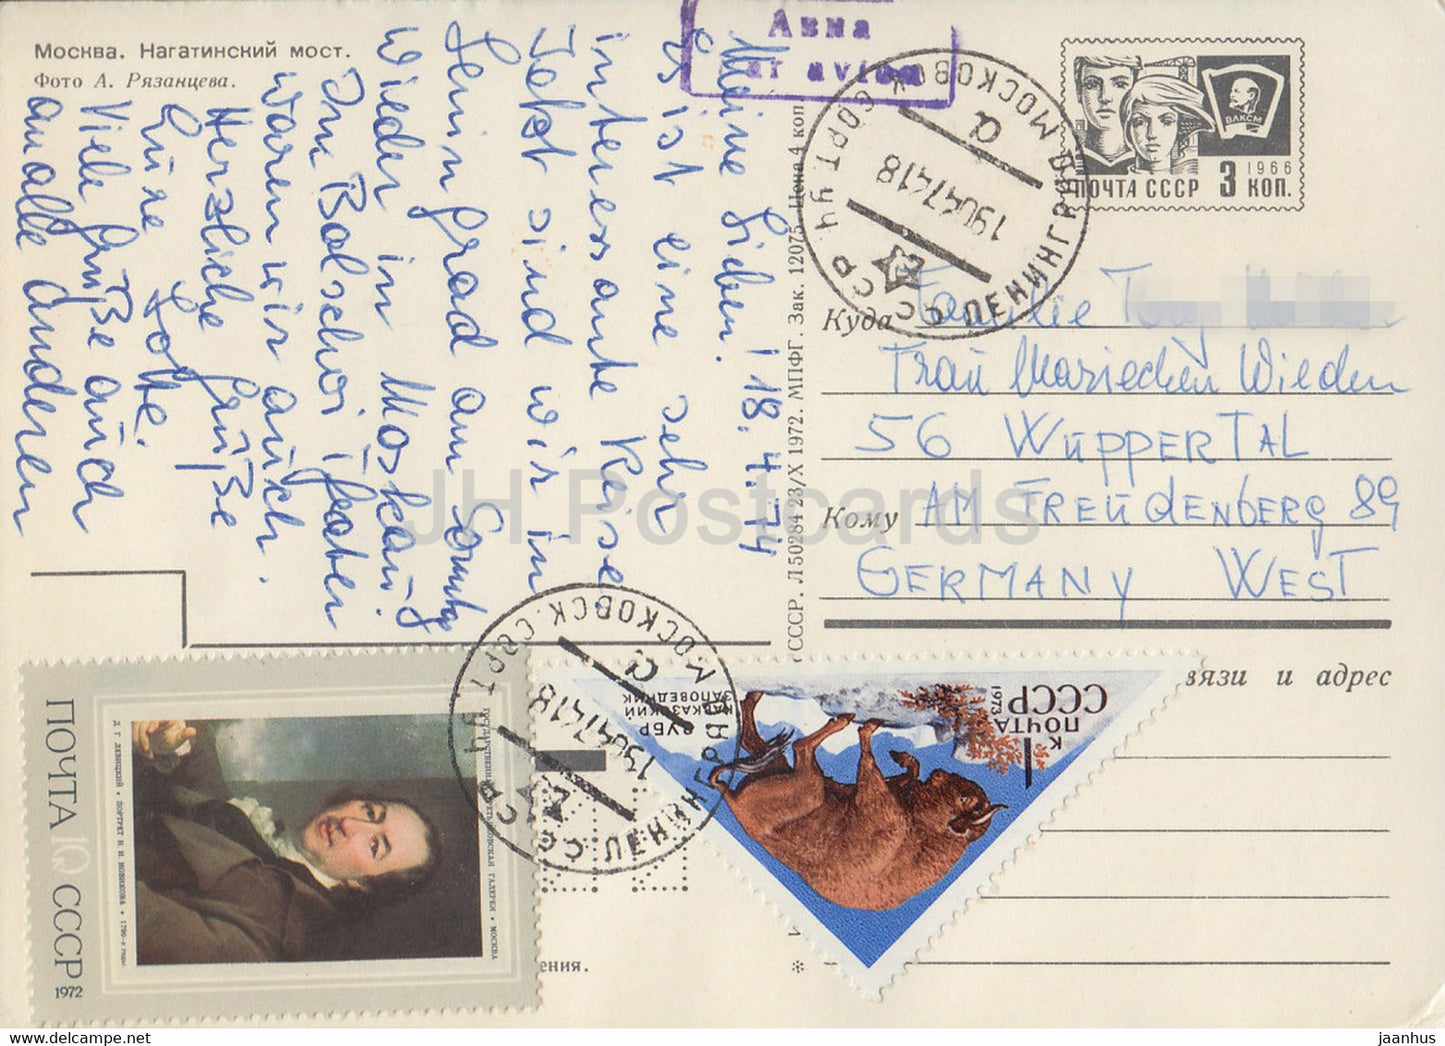 Москва. Нагатинский мост.
Фото А. Рязанцева.
Meine Lieben! 18.4.74
Es ist eine sehr
interessante Reise
Jetzt sind wir in
Leningrad am Sonntag
wieder in Moskau.
Im Bolschoi Theater
waren wir auch.
Herzliche Grüße
Eure Lotte.
Viele Grüße auch
an alle Anderen
Авиа
ar avion
ВЛКСМ
1966
ПОЧТА СССР 3 КОП.
ЛЕНИНГРАД МОСКОВСК. СОРТ. УЧ.
СССР
а
190474 18
СССР. Л50284 23/X 1972. МПФГ. Зак. 12075. Цена 4 коп
Куда Familie
Frau Mariechen Wieden
56 WÜPPERTAL
Кому AM FREÜDENBERG 89
GERMANY WEST
вязи и адрес
ения.
ПОЧТА 10 СССР
1972
Д. Г. ЛЕВИЦКИЙ • ПОРТРЕТ Н. И. НОВИКОВА • 1790-е годы
ГОСУДАРСТВЕННАЯ ТРЕТЬЯКОВСКАЯ ГАЛЕРЕЯ • МОСКВА
ЛЕНИНГРАД МОСКОВСК. СОРТ. УЧ.
СССР
а
190474 18
ЗУБР
КАВКАЗСКИЙ
ЗАПОВЕДНИК
1973
ПОЧТА
СССР
1 К
JH Postcards
jaanhus